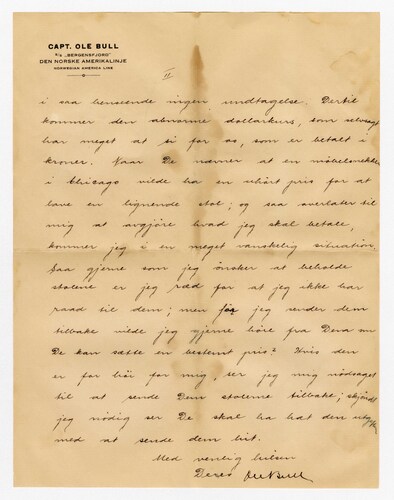 CAPT. OLE BULL
S/S „BERGENSFJORD"
DEN NORSKE AMERIKALINJE
NORWEGIAN AMERICA LINE
II
i saa henseende ingen undtagelse. Dertil
kommer den abnorme dollarkurs, som selvsagt
har meget at si for os, som er betalt i
kroner. Naar De nævner at en møbelsnekker
i Chicago vilde ha en uhört pris for at
lave en lignende stol; og saa overlater til
mig at avgjöre hvad jeg skal betale,
kommer jeg i en meget vanskelig situation.
Saa gjerne som jeg önsker at beholde
stolene er jeg ræd for at jeg ikke har
raad til dem; men för jeg sender dem
tilbake vilde jeg gjerne höre fra Dem om
De kan sætte en bestemt pris? Hvis den
er for höi for mig, ser jeg mig nödsaget
til at sende Dem stolene tilbake; skjöndt
jeg nödig ser De skal ha hat den utgift
med at sende dem hit.
Med venlig hilsen
Deres Ole Bull